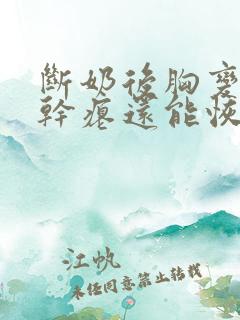 斷奶後胸變
幹癟還能恢
江帆
未任同意禁止转载